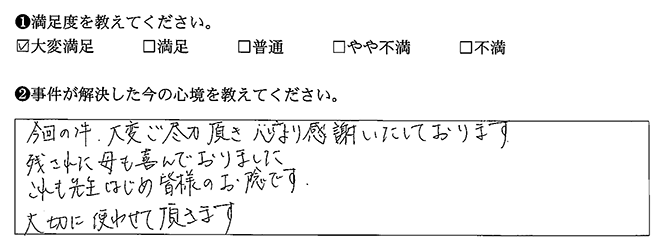 ❶満足度を教えてください。
☑大変満足 □満足 □普通 □やや不満 □不満
❷事件が解決した今の心境を教えてください。
今回の件、大変ご尽力頂き 心より感謝いたしております
残された母も喜んでおりました
これも先生はじめ皆様のお陰です.
大切に使わせて頂きます